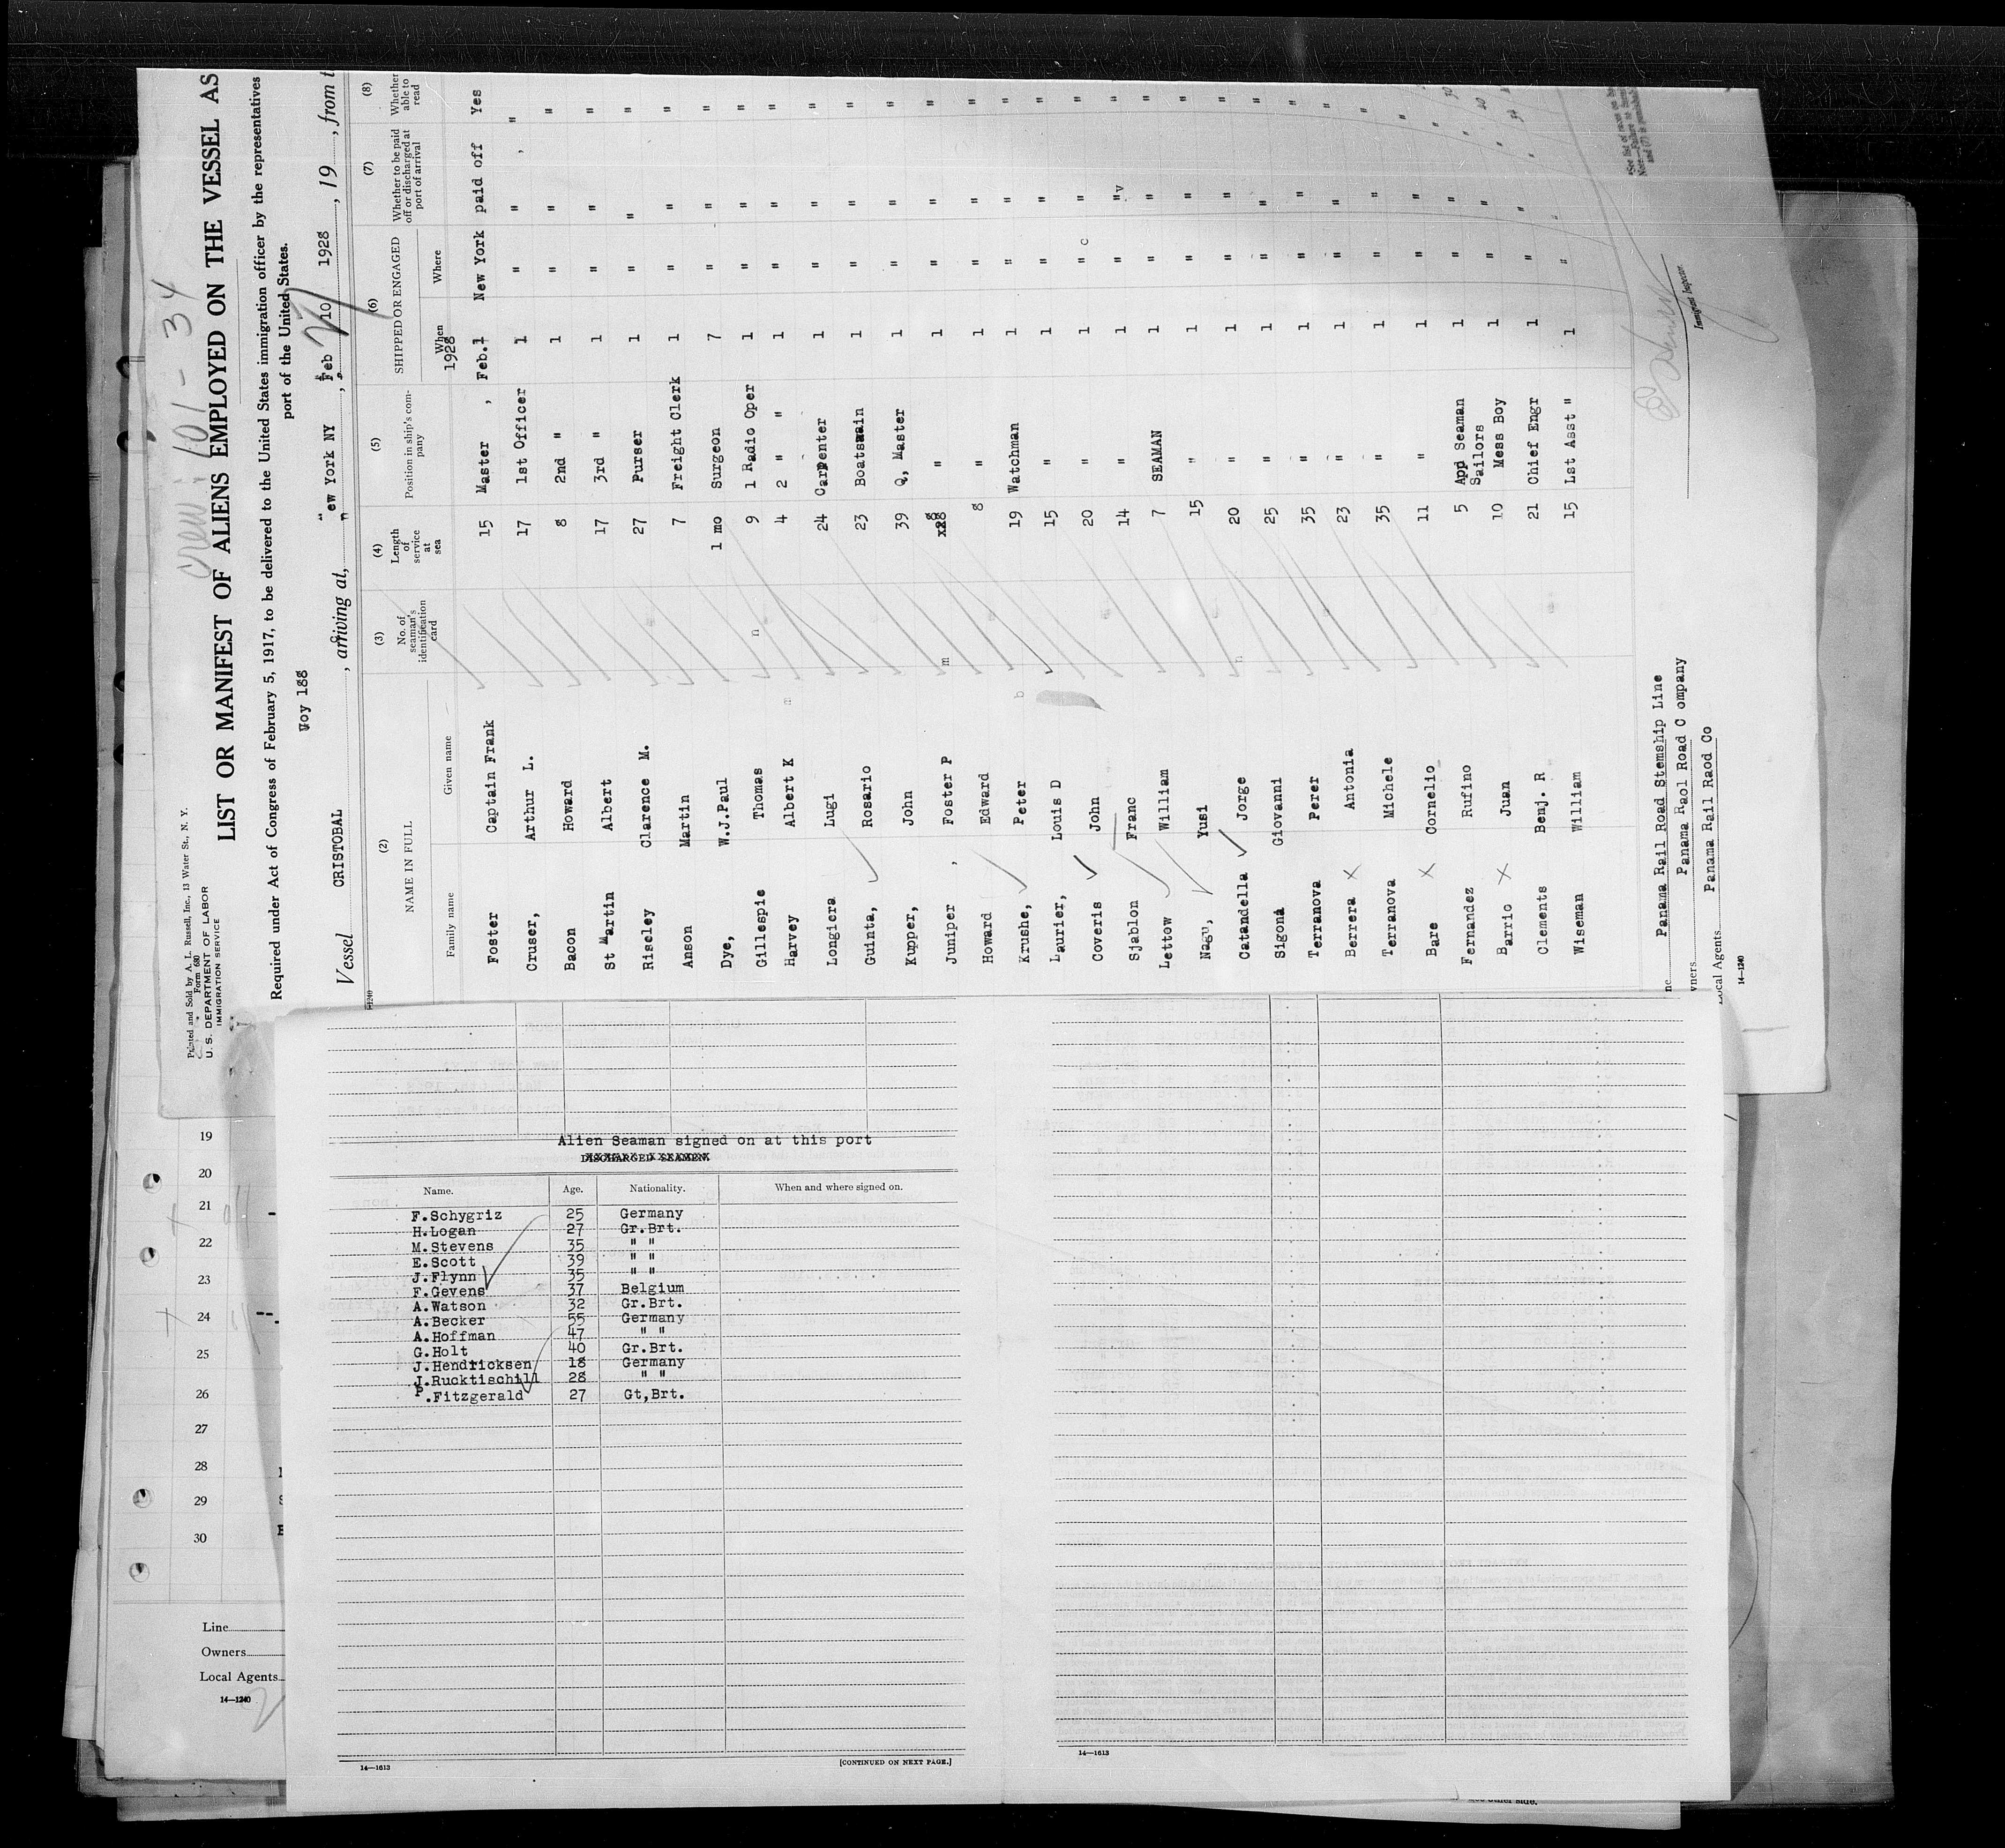 Crew: 101 - 34
Printed and Sold by A. L. Russell, Inc., 13 Water St., N. Y.
Form 680
U. S. DEPARTMENT OF LABOR
IMMIGRATION SERVICE
LIST OR MANIFEST OF ALIENS EMPLOYED ON THE VESSEL AS
Required under Act of Congress of February 5, 1917, to be delivered to the United States immigration officer by the representatives
port of the United States.
Voy 188
Vessel CRISTOBAL , arriving at, "ew York NY , Feb 10 1928 , 19 , from t
(2) (3) (4) (5) (6) (7) (8)
NAME IN FULL No. of seaman's identification card Length of service at sea Position in ship's company SHIPPED OR ENGAGED Whether to be paid off or discharged at port of arrival Whether able to read
Family name Given name When Where
1928
Foster Captain Frank 15 Master , Feb.1 New York paid off Yes
Cruser, Arthur L. 17 1st Officer 1 " " "
Bacon Howard 8 2nd " 1 " " "
St Martin Albert 17 3rd " 1 " " "
Riseley Clarence M. 27 Purser 1 " " "
Anson Martin 7 Freight Clerk 1 " " "
Dye, W.J.Paul 1 mo Surgeon 7 " " "
Gillespie Thomas 9 1 Radio Oper 1 " " "
Harvey Albert K 4 2 " " 1 " " "
Longiora Lugi 24 Carpenter 1 " " "
Guinta, Rosario 23 Boatswain 1 " " "
Kupper, John 39 Q, Master 1 " " "
Juniper , Foster P 8 " 1 " " "
Howard Edward 8 " 1 " " "
Krushe, Peter 19 Watchman 1 " " "
Laurier, Louis D 15 " 1 " " "
Coveris John 20 " 1 " " "
Sjablon Franc 14 " 1 " " "
Lettow William 7 SEAMAN 1 " " "
Nagu, Yusi 15 " 1 " " "
Catandella Jorge 20 " 1 " " "
Sigona Giovanni 25 " 1 " " "
Terranova Perer 35 " 1 " " "
Berrera X Antonia 23 " 1 " " "
Terranova Michele 35 " 1 " " "
Bare X Cornelio 11 " 1 " " "
Fernandez Rufino 5 App Seaman 1 " " "
Sailors
Barrio X Juan 10 Mess Boy 1 " " "
Clements Benj. R 21 Chief Engr 1 " " "
Wiseman William 15 Lst Asst " 1 " "
ne Panama Rail Road Stemship Line
wners Panama Raol Road C ompany
Local Agents Panama Rail Raod Co
14—1240
Immigrant Inspector.
Alien Seaman signed on at this port
DISCHARGED SEAMEN.
Name. Age. Nationality. When and where signed on.
F.Schygriz 25 Germany
H.Logan 27 Gr.Brt.
M.Stevens 35 " "
E.Scott 39 " "
J.Flynn 35 " "
F.Gevens 37 Belgium
A.Watson 32 Gr.Brt.
A.Becker 55 Germany
A.Hoffman 47 " "
G.Holt 40 Gr.Brt.
J.Hendricksen 18 Germany
J.Rucktischill 28 " "
P.Fitzgerald 27 Gt,Brt.
14—1613
[CONTINUED ON NEXT PAGE.]
14—1613
19
20
21
22
23
24
25
26
27
28
29
30
Line
Owners
Local Agents
14—1240